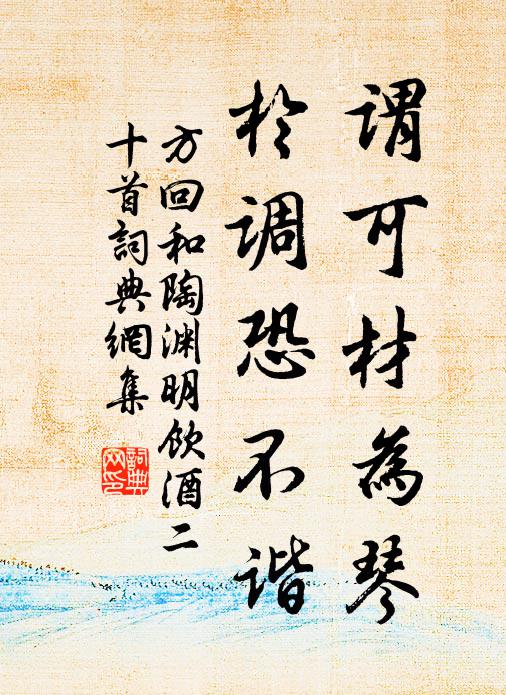 謂可材為琴
於調恐不谐
方回和陶渊明飲酒二
十首詞典網集
詞典
网印